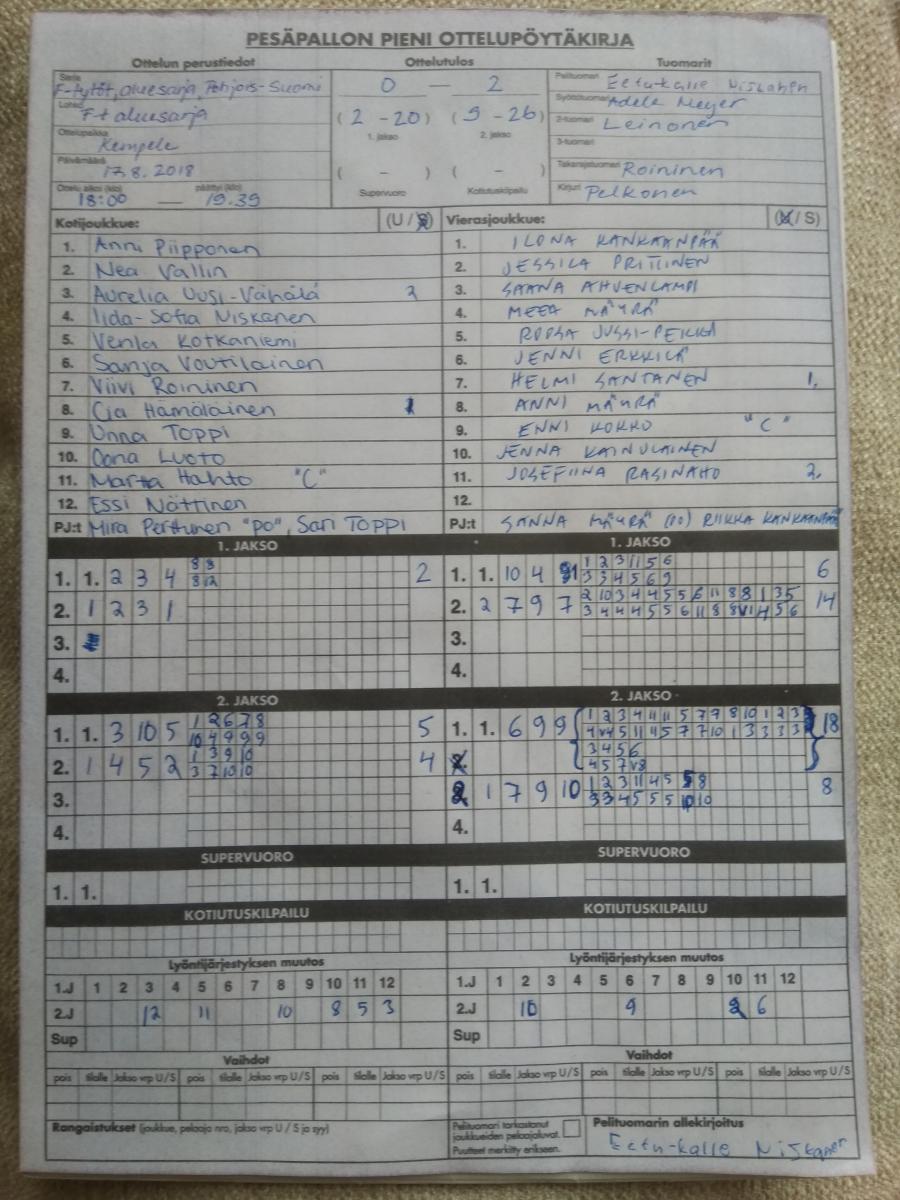 PESÄPALLON PIENI OTTELUPÖYTÄKIRJA
Ottelun perustiedot Ottelutulos Tuomarit
Sarja F-tytöt, aluesarja, Pohjois-Suomi 0 — 2 Pelituomari Eetu-Kalle Niskanen
Lohko F+ aluesarja (2 - 20) (9 - 26) Syöttötuomari Adele Meyer
1. jakso 2. jakso 2-tuomari Leinonen
Ottelupaikka Kempele 3-tuomari
Päivämäärä 17.8.2018 ( - ) ( - ) Takarajatuomari Roininen
Ottelu alkoi (klo) 18:00 — päättyi (klo) 19.39 Supervuoro Kotiutuskilpailu Kirjuri Pelkonen
Kotijoukkue: (U / S) Vierasjoukkue: (U / S)
1. Anni Piipponen 1. ILONA KANKAANPÄÄ
2. Nea Vallin 2. JESSICA PRITTINEN
3. Aurelia Uusi-Vähälä 2 3. SAANA AHVENLAMPI
4. Iida-Sofia Niskanen 4. MEEA MÄYRÄ
5. Venla Kotkaniemi 5. ROOSA JUSSI-PEKKA
6. Sanja Voutilainen 6. JENNI ERKKILÄ
7. Viivi Roininen 7. HELMI SANTANEN 1.
8. Cia Hämäläinen 1 8. ANNI MÄYRÄ
9. Unna TOPPI 9. ENNI KOKKO "C"
10. Oona LUOTO 10. JENNA KAINULAINEN
11. Marta Hahto "C" 11. JOSEFIINA RASINAHO 2.
12. Essi Nättinen 12.
PJ:t Mira Perttunen "PO", Sari TOPPI PJ:t SANNA MÄYRÄ (PO) RIIKKA KANKAANPÄÄ
1. JAKSO 1. JAKSO
8 8 1 2 3 11 5 6
1. 1. 2 3 4 2 1. 1. 10 4 6
8 12 3 3 4 5 6 9
2 10 3 4 4 5 5 6 11 8 8 1 3 5
2. 1 2 3 1 2. 2 7 9 7 14
3 4 4 4 5 5 6 11 8 8
3. 3.
4. 4.
2. JAKSO 2. JAKSO
1 2 6 7 8 1 2 3 4 11 11 5 7 7 8 10 1 2 3
1. 1. 3 10 5 5 1. 1. 6 9 9 18
10 4 9 9 9 5 11 4 5 7 7 10 1 3 3 3 3
1 3 9 10 3 4 5 6
2. 1 4 5 2 4
3 7 10 10 4 5 7
1 2 3 11 4 5 5 8
3. 2 1 7 9 10 8
3 3 4 5 5 5 10 10
4. 4.
SUPERVUORO SUPERVUORO
1. 1. 1. 1.
KOTIUTUSKILPAILU KOTIUTUSKILPAILU
Lyöntijärjestyksen muutos Lyöntijärjestyksen muutos
1.J 1 2 3 4 5 6 7 8 9 10 11 12 1.J 1 2 3 4 5 6 7 8 9 10 11 12
2.J 12 11 10 8 5 3 2.J 10 9 2 6
Sup Sup
Vaihdot Vaihdot
pois tilalle Jakso vrp U/S pois tilalle Jakso vrp U/S pois tilalle Jakso vrp U/S pois tilalle Jakso vrp U/S pois tilalle Jakso vrp U/S pois tilalle Jakso vrp U/S
Rangaistukset (joukkue, pelaaja nro, jakso vrp U / S ja syy) Pelituomari tarkastanut joukkueiden pelaajaluvat. Pelituomarin allekirjoitus
Puutteet merkitty erikseen. Eetu-Kalle Niskanen